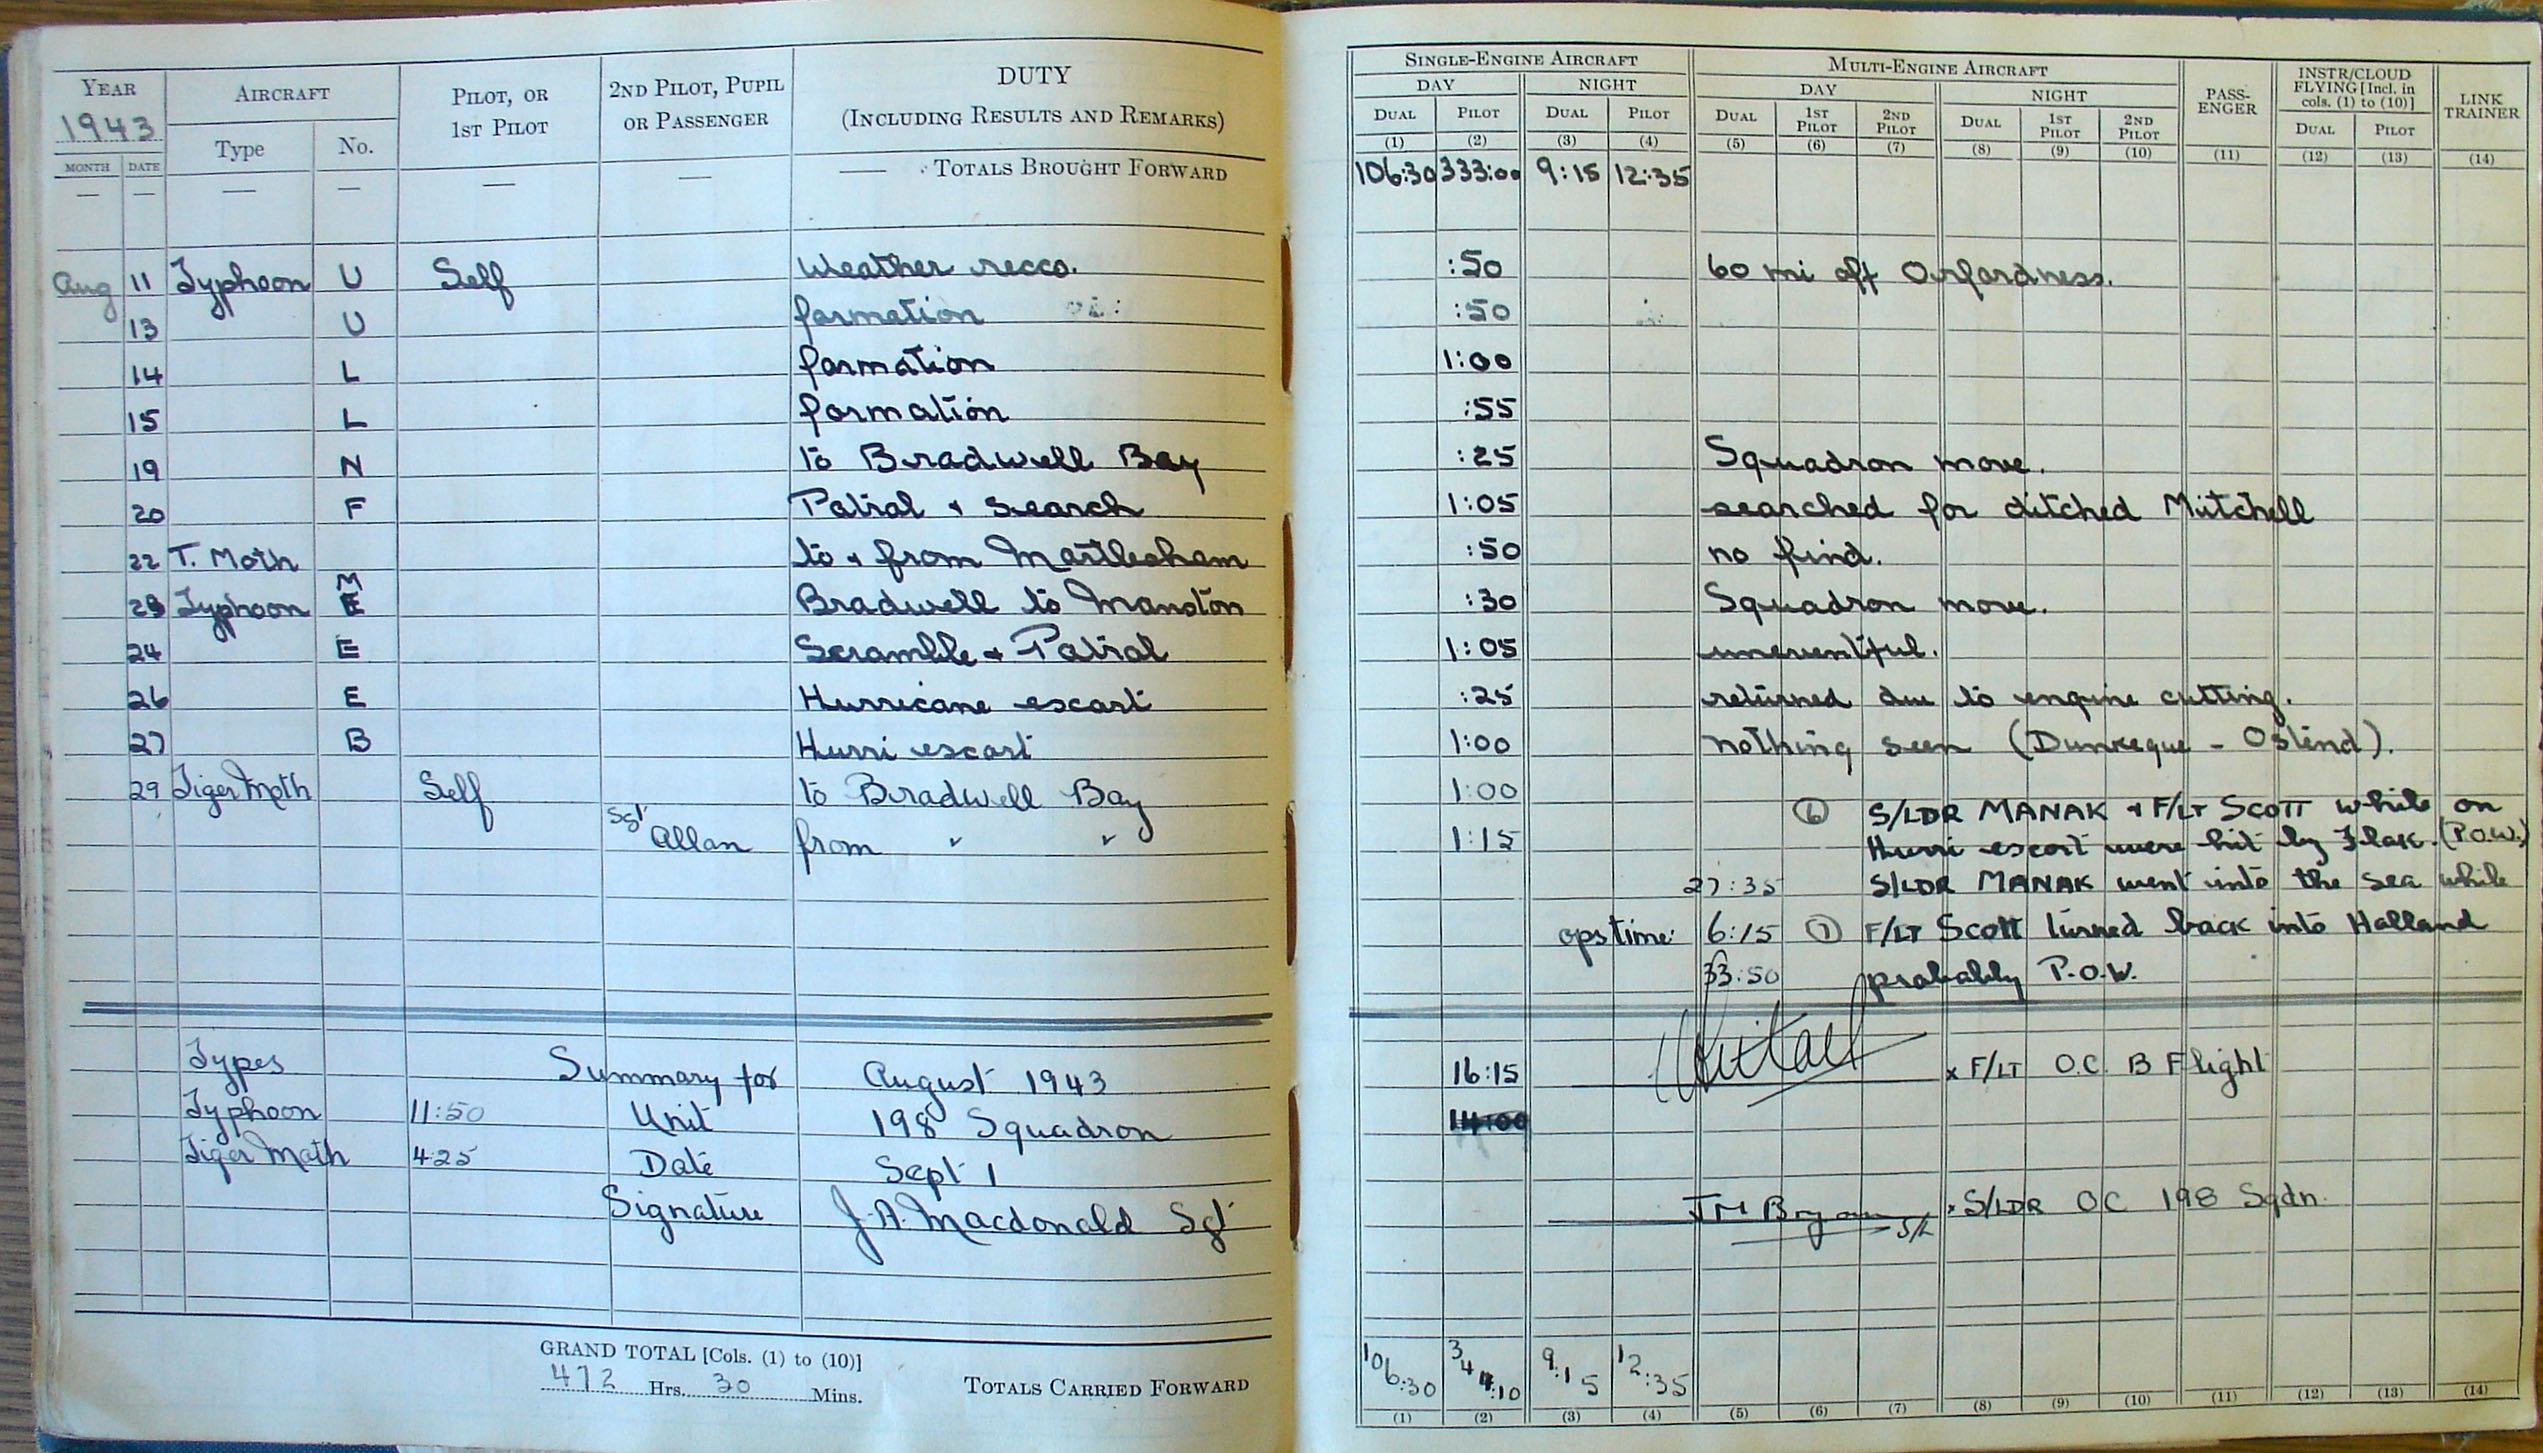 YEAR 1943 AIRCRAFT PILOT, OR 1ST PILOT 2ND PILOT, PUPIL OR PASSENGER DUTY (INCLUDING RESULTS AND REMARKS)
MONTH DATE Type No.
— — — — — — — TOTALS BROUGHT FORWARD
Aug 11 Typhoon U Self Weather recco.
13 U formation
14 L formation
15 L formation
19 N to Bradwell Bay
20 F Patrol + search
22 T. Moth to + from Martlesham
23 Typhoon M E Bradwell to Manston
24 E Scramble + Patrol
26 E Hurricane escort
27 B Hurri escort
29 Tiger Moth Self to Bradwell Bay
Sgt Allan from " "
Types Summary for August 1943
Typhoon 11:50 Unit 198 Squadron
Tiger Moth 4:25 Date Sept 1
Signature J.A. Macdonald Sgt
GRAND TOTAL [Cols. (1) to (10)]
472 Hrs. 30 Mins. TOTALS CARRIED FORWARD
SINGLE-ENGINE AIRCRAFT MULTI-ENGINE AIRCRAFT PASS-ENGER INSTR/CLOUD FLYING [Incl. in cols. (1) to (10)] LINK TRAINER
DAY NIGHT DAY NIGHT
DUAL PILOT DUAL PILOT DUAL 1ST PILOT 2ND PILOT DUAL 1ST PILOT 2ND PILOT DUAL PILOT
(1) (2) (3) (4) (5) (6) (7) (8) (9) (10) (11) (12) (13) (14)
106:30 333:00 9:15 12:35
:50 60 mi off Orfordness.
:50
1:00
:55
:25 Squadron move.
1:05 searched for ditched Mitchell
:50 no find.
:30 Squadron move.
1:05 uneventful.
:25 returned due to engine cutting.
1:00 nothing seen (Dunkeque - Ostend).
1:00 (6) S/LDR MANAK + F/LT SCOTT while on
1:15 Hurri escort were hit by Flak. (P.O.W.)
27:35 S/LDR MANAK went into the sea while
ops time: 6:15 (7) F/LT Scott turned back into Holland
33:50 probably P.O.W.
16:15 x F/LT O.C. B Flight
14:00
J M Bryan S/L x S/LDR OC 198 Sqdn.
106:30 344:10 9:15 12:35
(1) (2) (3) (4) (5) (6) (7) (8) (9) (10) (11) (12) (13) (14)